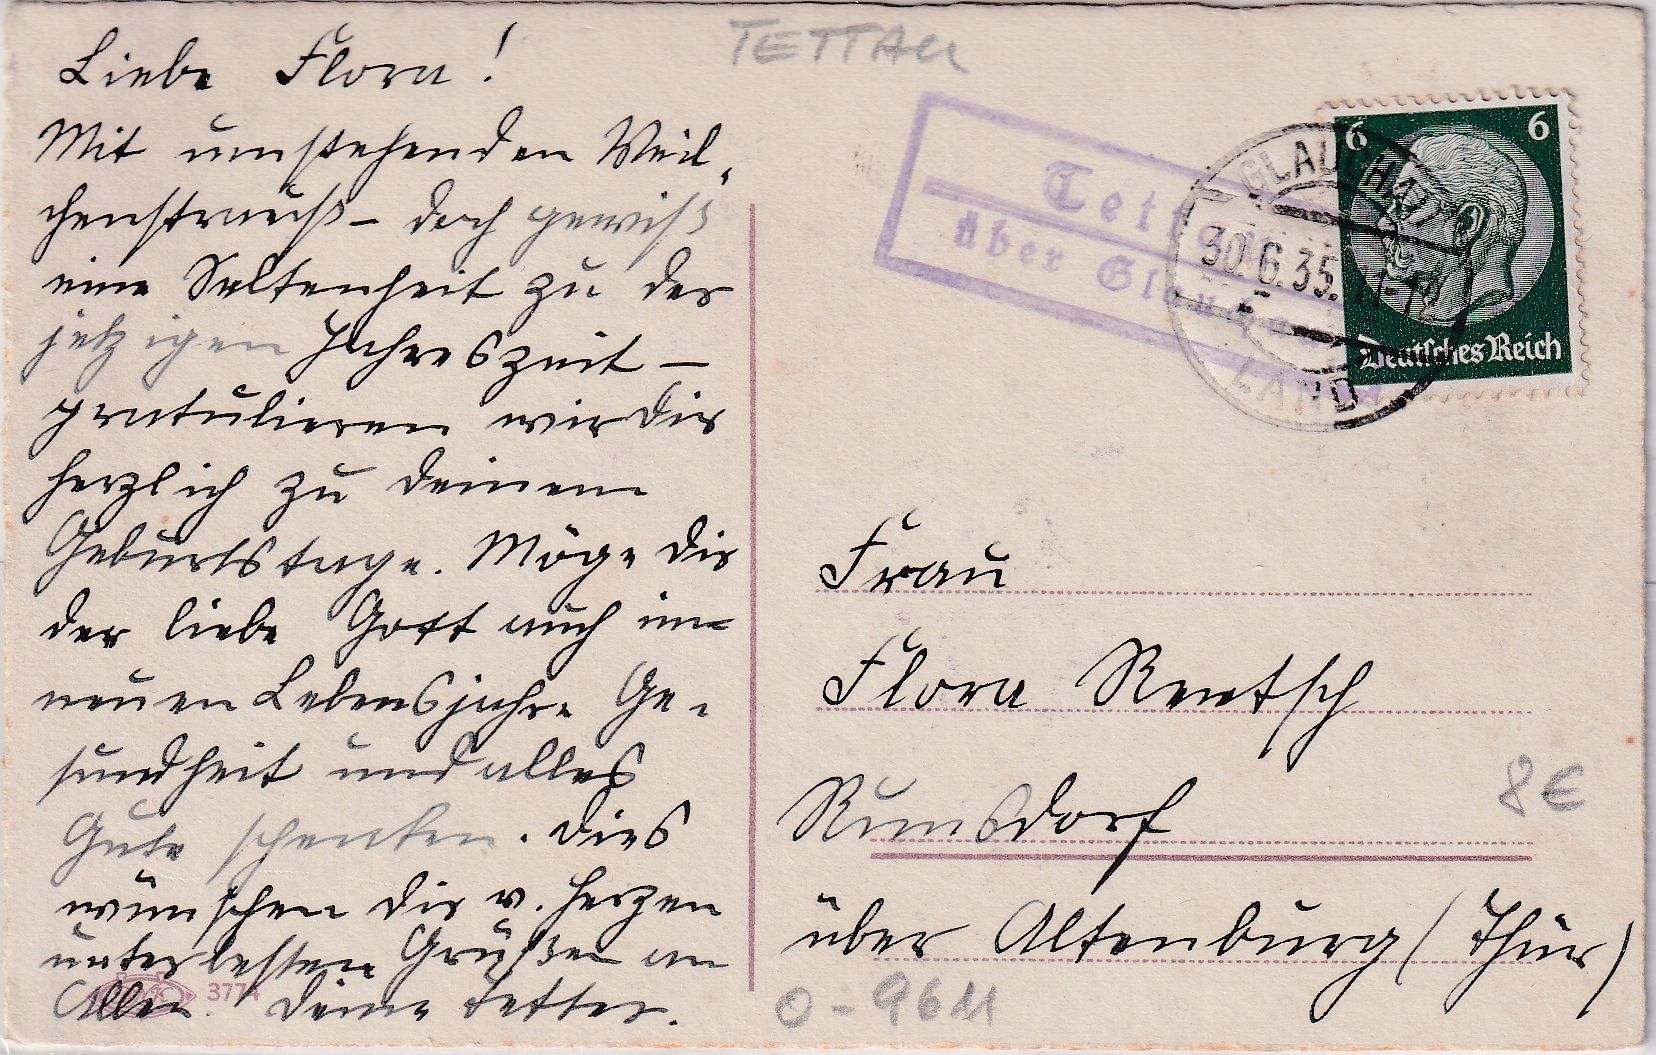 TETTAU
Liebe Flora!
Mit umstehenden Veil-
chenstrauß – doch gewiß
eine Seltenheit zu der
jetzigen Jahreszeit –
gratulieren wir Dir
herzlich zu deinem
Geburtstage. Möge Dir
der liebe Gott auch im
neuen Lebensjahre Ge-
sundheit und alles
Gute schenken. Dies
wünschen Dir v. Herzen
unter besten Grüßen an
Allen. Deine
3774
Tettau
über Glauchau
GLAUCHAU
30.6.35.11-12
LAND
6 6
Deutsches Reich
Frau
Flora Rentsch
dorf
über Altenburg (Thür)
8€
O-9611